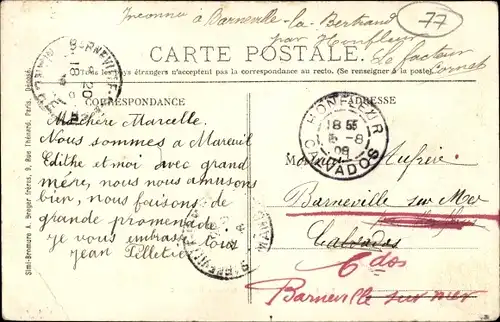 Inconnu à Barneville-la-Bertrand
par Honfleur
Le facteur
77
CARTE POSTALE.
Tous les pays étrangers n'acceptent pas la correspondance au recto. (Se renseigner à la poste)
CORRESPONDANCE
ADRESSE
Ma chère Marcelle.
Nous sommes a Mareuil
Edithe et moi avec grand
mère, nous nous amusons
bien, nous faisons de
grande promenade.
je vous embrasse tous
Jean Pelletier
HONFLEUR
18 55
5-8
09
CALVADOS
Barneville sur Mer
Calvados
Cdos
Barneville sur mer
Simili-Bromure A. Breger frères, 9, Rue Thénard, Paris.